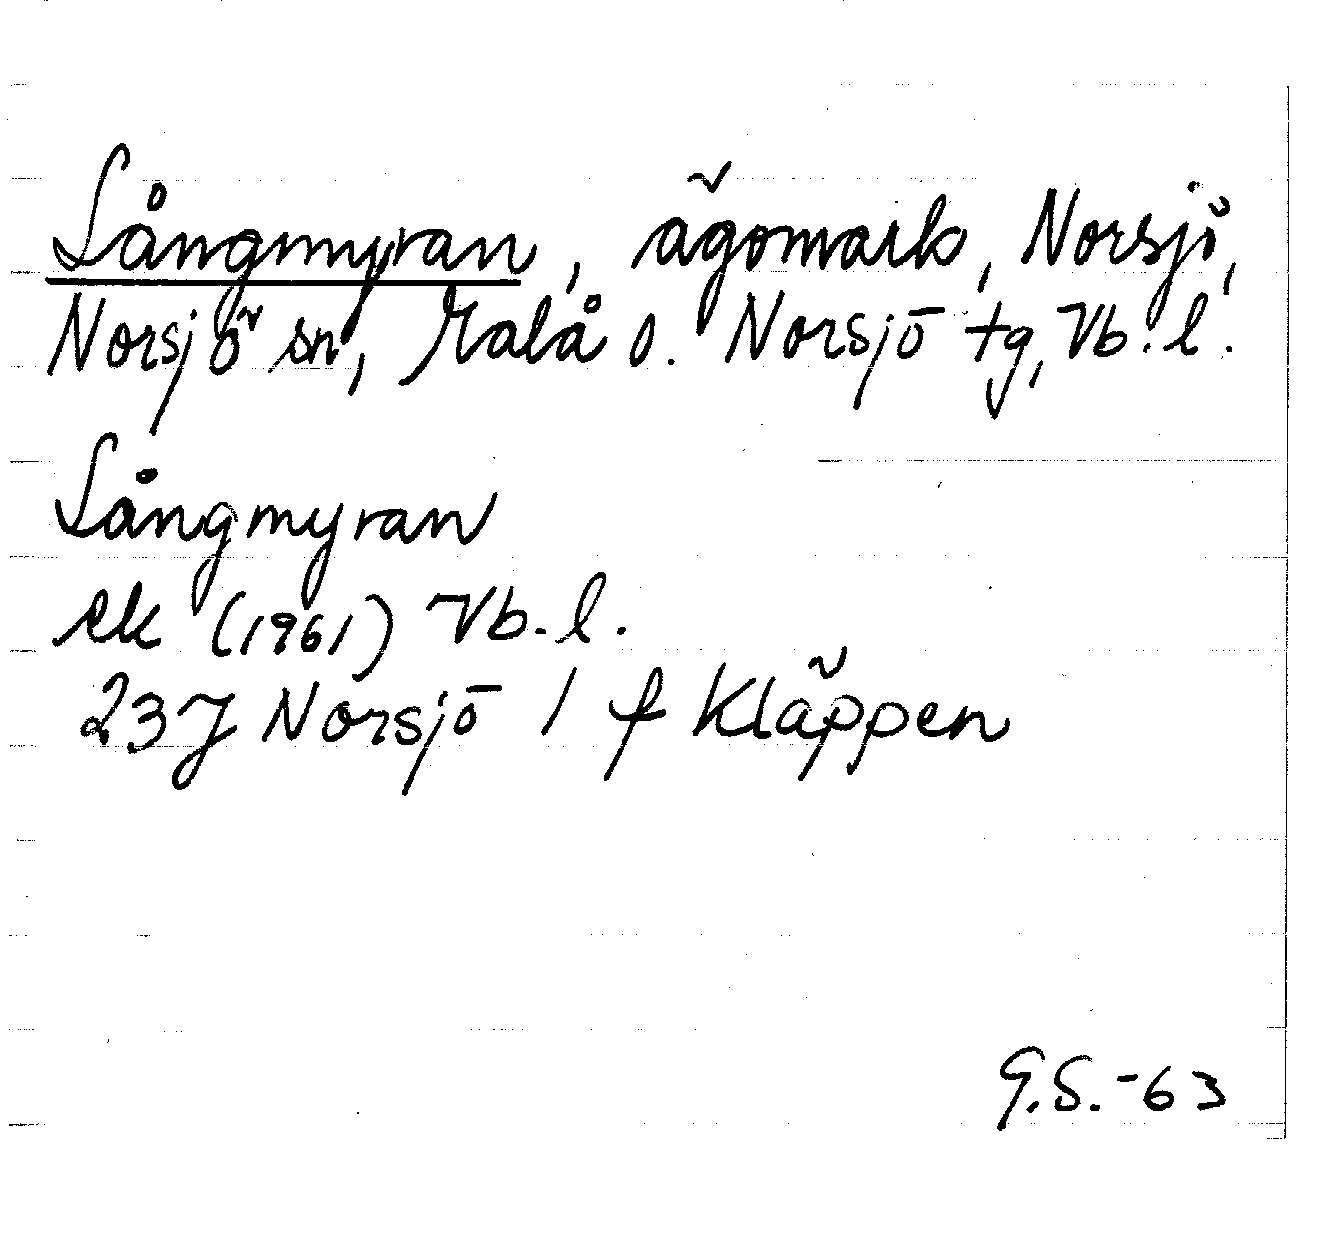 Långmyran, ägomark, Norsjö,
Norsjö sn, Malå o. Norsjö tg, Vb. l.
Långmyran
ek (1961) Vb. l.
23J Norsjö 1 f Kläppen
G.S. -63